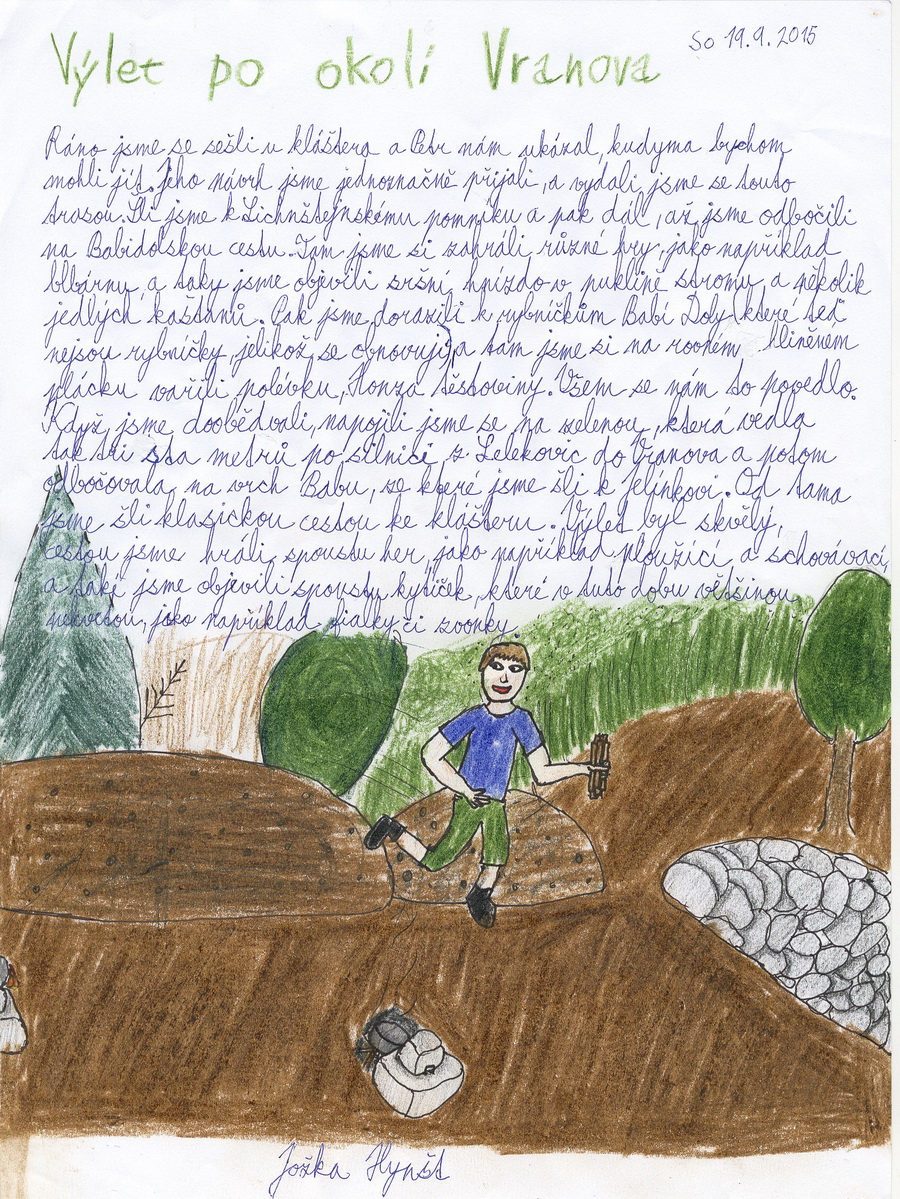 Výlet po okolí Vranova
So 19.9.2015
Ráno jsme se sešli u kláštera a Petr nám ukázal, kudyma bychom
mohli jít. Jeho návrh jsme jednoznačně přijali, a vydali jsme se touto
trasou. Šli jsme k Lichnštejnskému pomníku a pak dál, až jsme odbočili
na Babidolskou cestu. Tam jsme si zahráli různé hry, jako například
blbárnu, a taky jsme objevili sršní hnízdo v puklině stromu a několik
jedlých kaštanů. Pak jsme dorazili k rybníčkům Babí Doly (které teď
nejsou rybníčky, jelikož se obnovují) a tam jsme si na rovném hliněném
plácku vařili polévku, Honza těstoviny. Všem se nám to povedlo.
Když jsme doobědvali, napojili jsme se na zelenou, která vedla
tak tři sta metrů po silnici z Lelekovic do Vranova a potom
odbočovala na vrch Babu, ze které jsme šli k Jelínkovi. Od tama
jsme šli klasickou cestou ke klášteru. Výlet byl skvělý,
cestou jsme hráli spoustu her, jako například ploužící a schovávací,
a také jsme objevili spoustu kytiček, které v tuto dobu většinou
nekvetou, jako například fialky či zvonky.
Jožka Hynšt